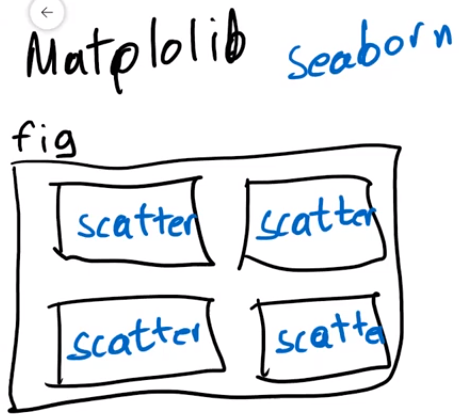 Matplolib seaborn
fig
scatter scatter
scatter scatte